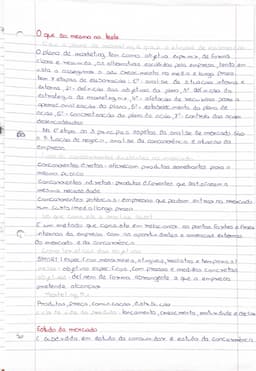 O que sai mesmo no teste
O plano de marketing tem como objetivo exprimir de forma
clara e resumida, as alternativas escolhidas pela empresa, tendo em
vista a assegurar o seu crescimento no médio e longo prazo.
tem 7 etapas de elaboração: 1º análise da situação interna e
externa, 2º definição dos objetivos do plano, 3º definição da
estratégia de marketing, 4º afetação de recursos para a
operacionalização do plano, 5º estabelecimento do plano de
ação, 6º concretização do plano de ação, 7º controlo das ações
desencadeadas.
Na 1ª etapa os 3 principais aspetos da análise de mercado são
a situação do negócio, análise da concorrência e situação da
empresa.
Concorrentes diretos: oferecem produtos semelhantes para o
mesmo público
Concorrentes indiretos: produtos diferentes que satisfazem a
mesma necessidade
Concorrentes potenciais: empresas que podem entrar no mercado
num curto/médio/longo prazo
É um método que consiste em relacionar os pontos fortes e fracos
internos da empresa com as oportunidades e ameaças externas
do mercado e da concorrência.
SMART (específicos, mensuráveis, atingíveis, realistas e temporais)
metas: objetivos específicos, com prazos e medidas concretas
objetivos: definem de forma abrangente o que a empresa
pretende alcançar
Marketing
Produtos, preço, comunicação, distribuição
ciclo de vida do produto: lançamento, crescimento, maturidade e declínio
Estudo do mercado
É subdividido em estudo do consumidor e estudo da concorrência.